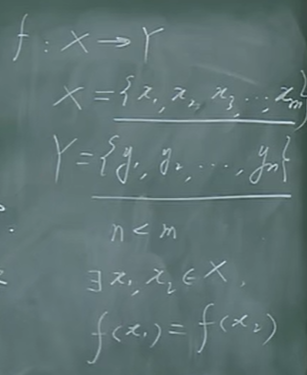 f : X → Y
X = {x₁, x₂, x₃, ..., xₘ}
Y = {y₁, y₂, ..., yₙ}
n < m
∃ x₁, x₂ ∈ X,
f(x₁) = f(x₂)